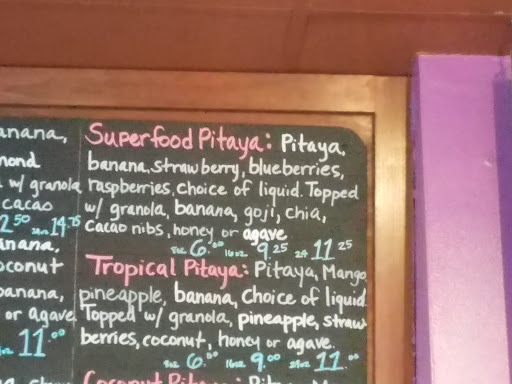 anana,
mond
w/ granola
cacao
2.50 14.75
anana,
oconut
banana,
or agave.
11.00
Superfood Pitaya: Pitaya,
banana, strawberry, blueberries,
raspberries, choice of liquid. Topped
w/ granola, banana, goji, chia,
Cacao nibs, honey or agave
6.00 16oz 9.25 24 11.25
Tropical Pitaya: Pitaya, Mango
pineapple, banana, Choice of liquid
Topped w/ granola, pineapple, straw
berries, coconut, honey or agave.
6.00 16oz 9.00 24oz 11.00
Coconut Pitaya: